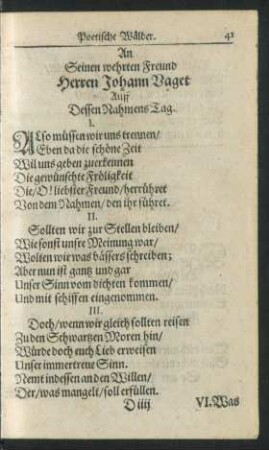 Poetische Wälder. 41
An
Seinen wehrten Freund
Herren Johann Vaget
Auff
Dessen Nahmens Tag.
I.
Also müssen wir uns trennen/
Eben da die schöne Zeit
Wil uns geben zuerkennen
Die gewünschte Fröligkeit
Die/O! liebster Freund/herrühret
Von dem Nahmen/den ihr führet.
II.
Sollten wir zur Stellen bleiben/
Wie sonst unsre Meinung war/
Wolten wir was bässers schreiben;
Aber nun ist gantz und gar
Unser Sinn vom dichten kommen/
Und mit schiffen eingenommen.
III.
Doch/wenn wir gleich sollten reisen
Zu den Schwartzen Moren hin/
Würde doch euch Lieb erweisen
Unser immertreue Sinn.
Nemt indessen an den Willen/
Der/was mangelt/soll erfüllen.
D iiij VI. Was